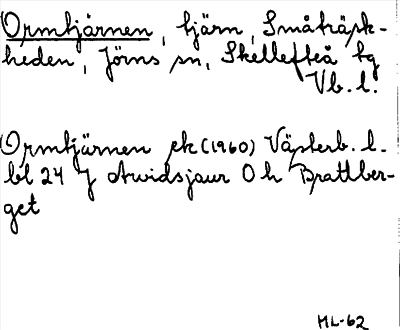 Ormtjärnen, tjärn, Småträsk-
heden, Jörns sn, Skellefteå tg
Vb. l.
Ormtjärnen ek (1960) Västerb. l.
bl 24 J Arvidsjaur 0 h Brattber-
get
ML-62